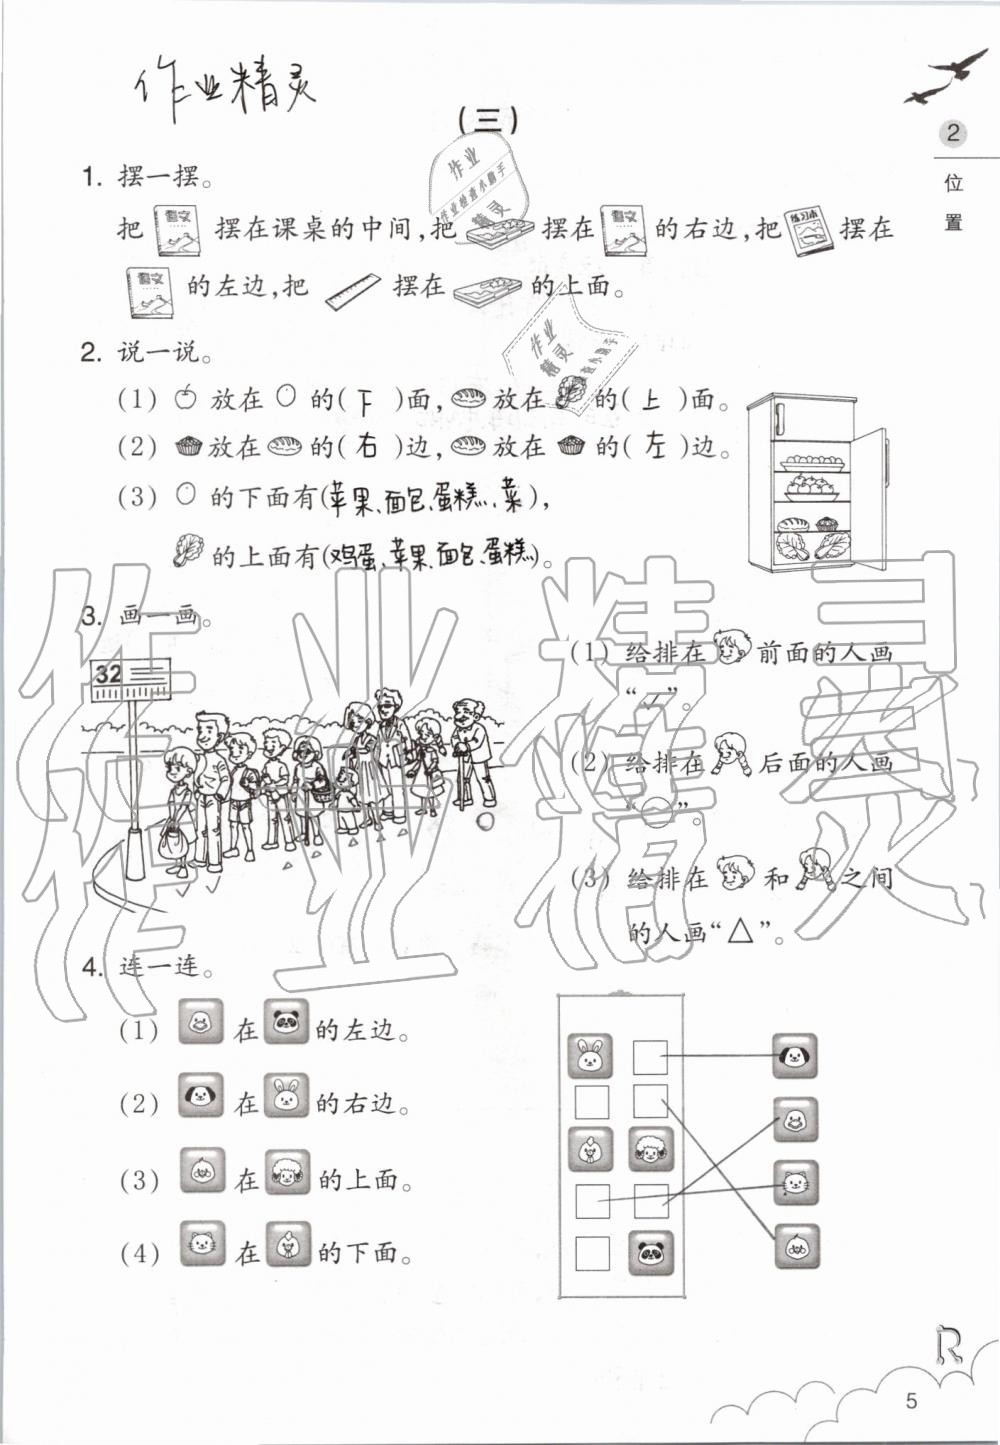 作业精灵
(三)
2
位
置
1. 摆一摆。
把 语文 摆在课桌的中间,把 摆在 语文 的右边,把 练习本 摆在
语文 的左边,把 摆在 的上面。
作业
作业检查小助手
精灵
2. 说一说。
作业
精灵
检查小助手
(1) 放在 的(下)面, 放在 的(上)面。
(2) 放在 的(右)边, 放在 的(左)边。
(3) 的下面有(苹果、面包、蛋糕、菜),
的上面有(鸡蛋、苹果、面包、蛋糕)。
3. 画一画。
32
(1) 给排在 前面的人画
“✓”。
(2) 给排在 后面的人画
“○”。
(3) 给排在 和 之间
的人画“△”。
作业精灵
作业精灵
4. 连一连。
(1) 在 的左边。
(2) 在 的右边。
(3) 在 的上面。
(4) 在 的下面。
R
5